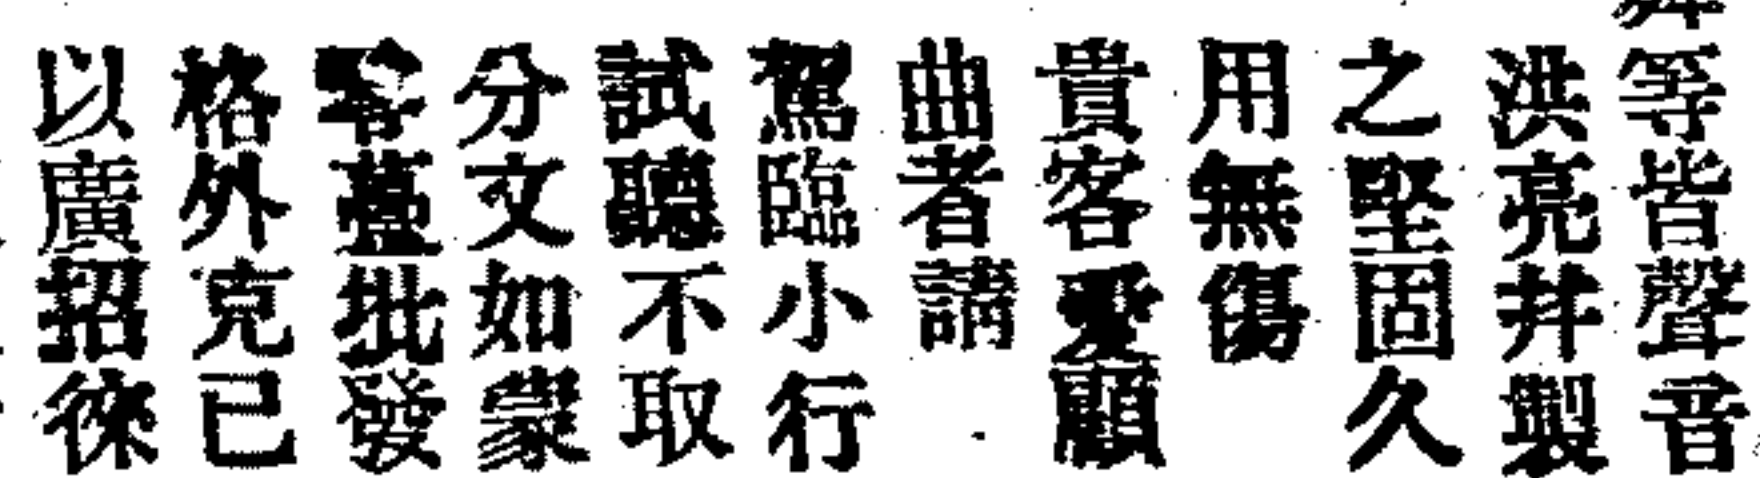 等皆聲音
洪亮并製
之堅固久
用無傷
貴客愛顧
曲者請
駕臨小行
試聽不取
分文如蒙
躉批發
格外克已
以廣招徠